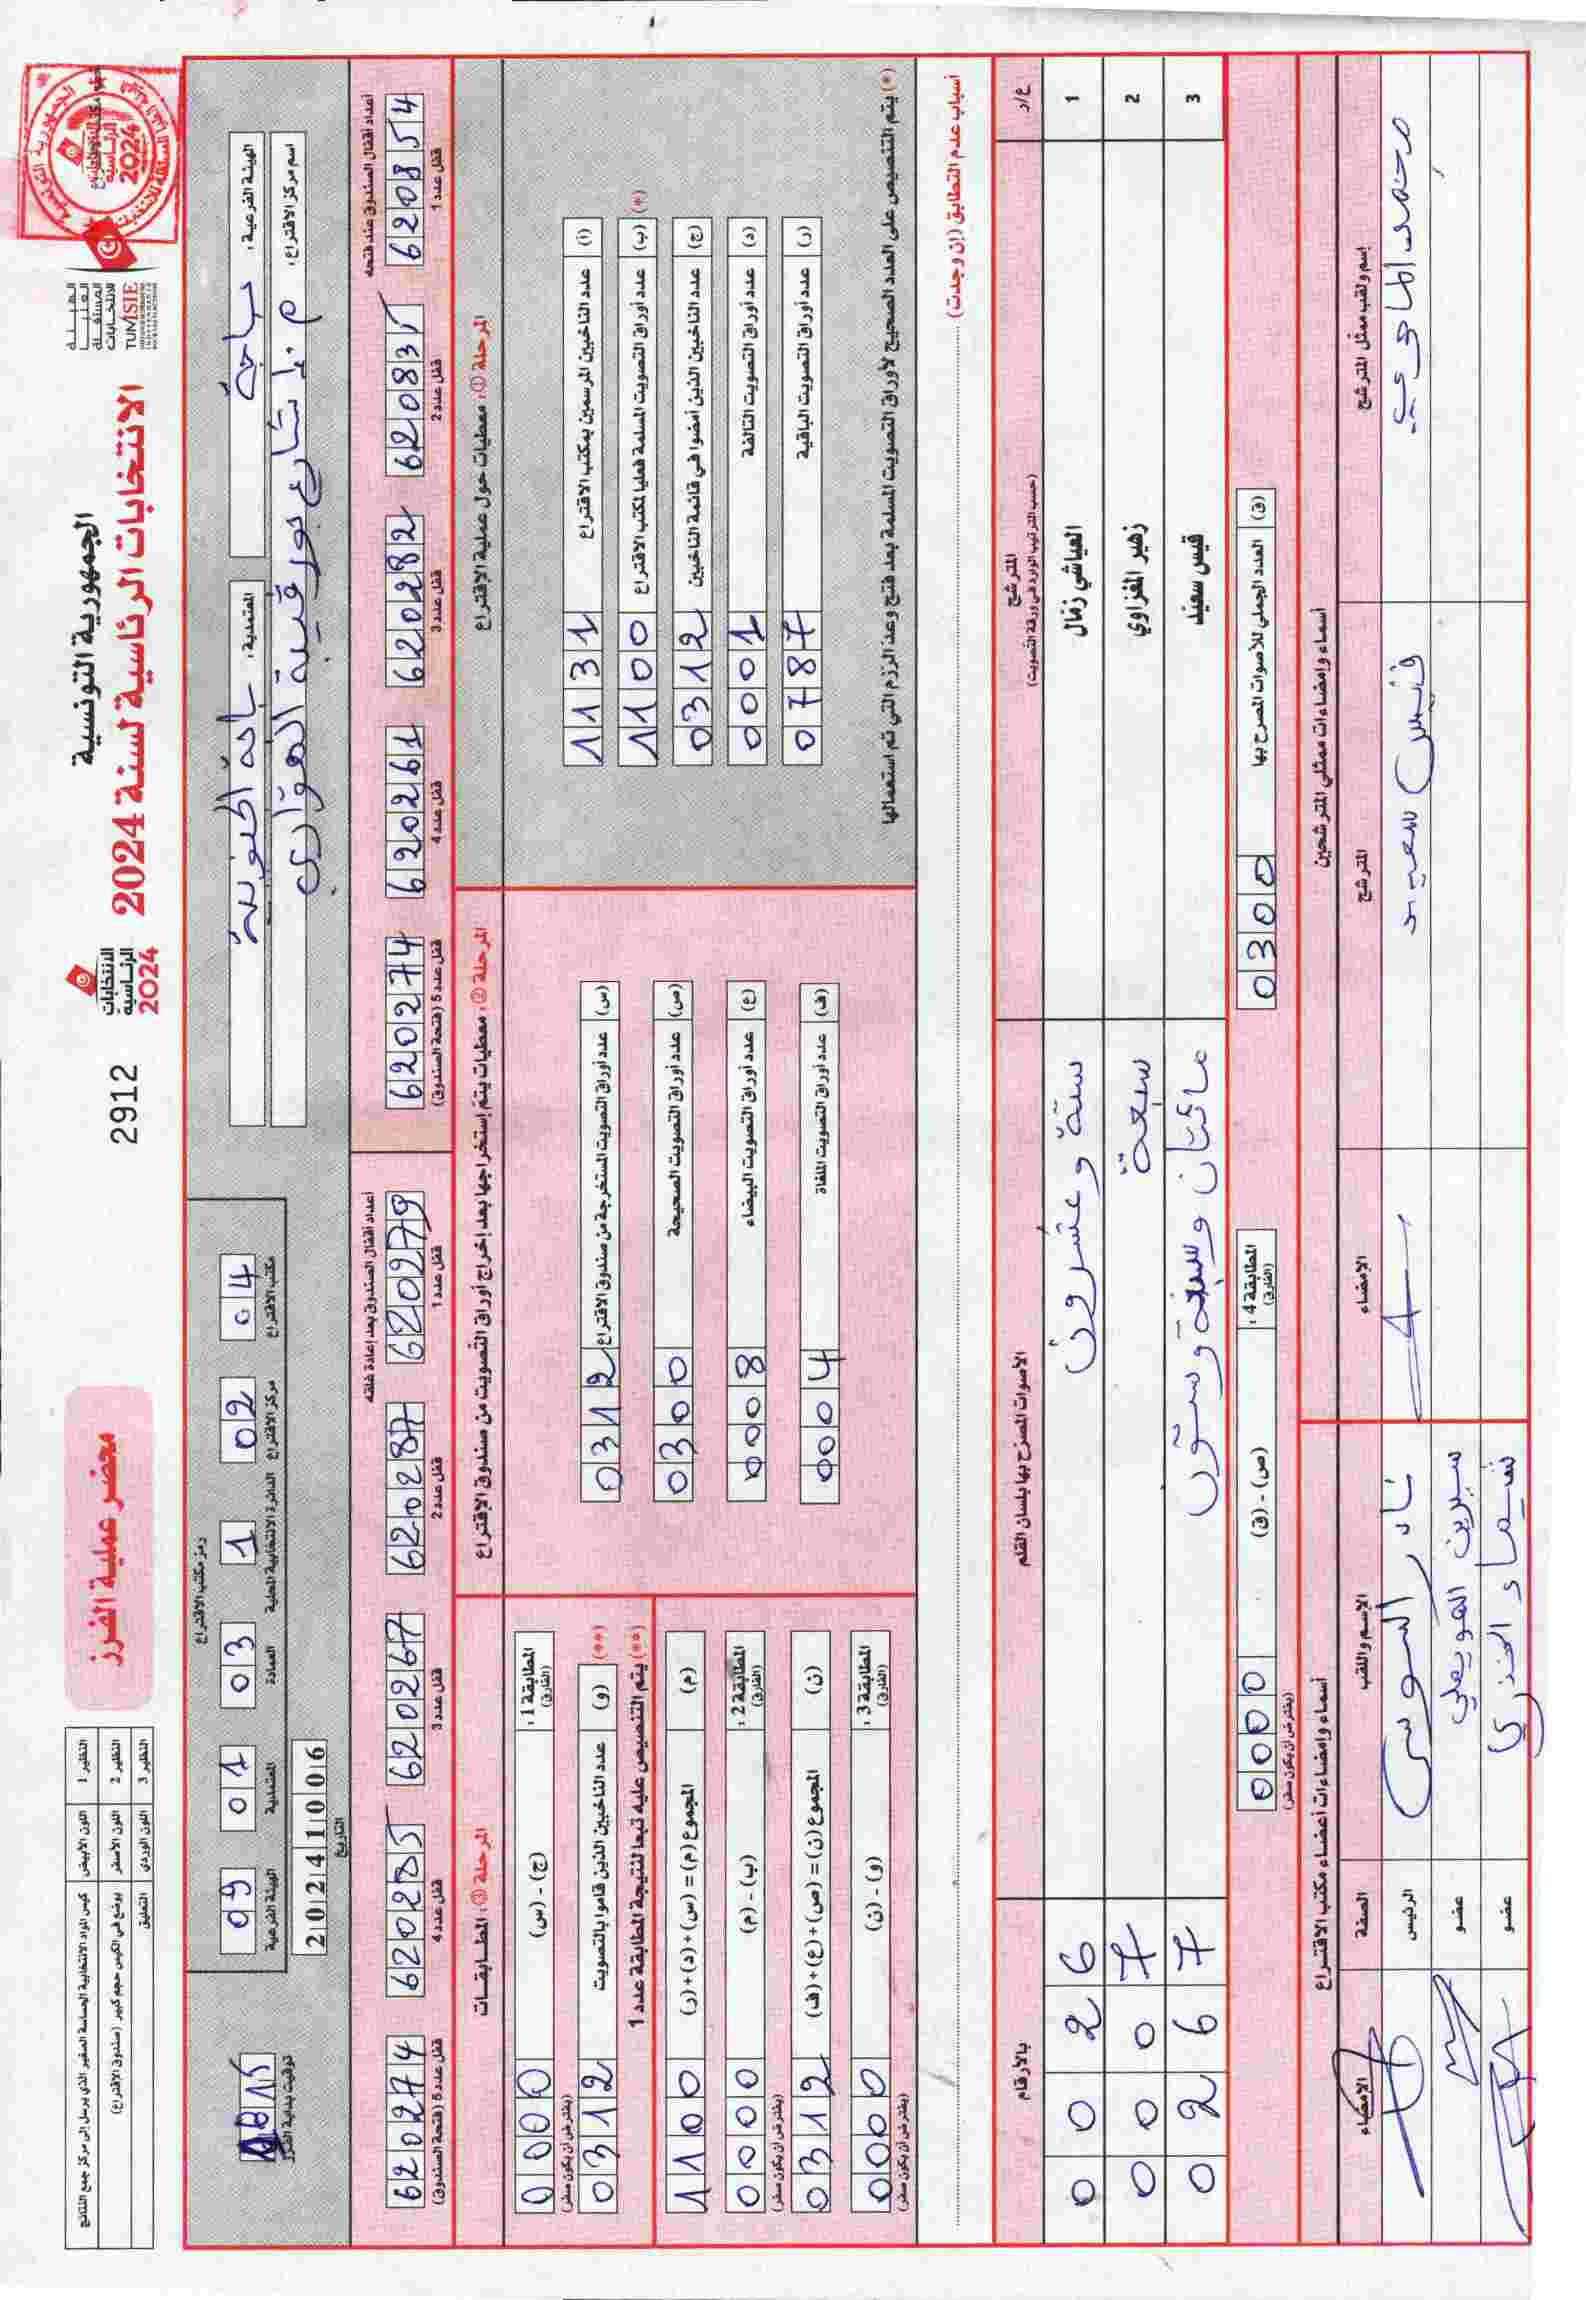 الجمهورية التونسية
الانتخابات الرئاسية لسنة 2024
الهيئة
العليا
المستقلة
للانتخابات
TUNISIE
الانتخابات
الرئاسية
2024
2912
محضر عملية الفرز
النظير 1 اللون الأبيض كيس المواد الانتخابية الحساسة الصغير الذي يرسل إلى مركز جمع النتائج
النظير 2 اللون الأصفر يوضع في الكيس حجم كبير (صندوق الاقتراع)
النظير 3 اللون الوردي التعليق
الهيئة الفرعية : باجة
المعتمدية : باجة الجنوبية
اسم مركز الاقتراع : م.إ. شارع بورقيبة الهواري
رمز مكتب الاقتراع
مكتب الاقتراع 04
مركز الاقتراع 02
الدائرة الانتخابية المحلية 1
العمادة 03
المعتمدية 01
الهيئة الفرعية 09
التاريخ 20241006
توقيت بداية الفرز
أعداد أقفال الصندوق عند فتحه
620854 قفل عدد 1
620835 قفل عدد 2
620282 قفل عدد 3
620261 قفل عدد 4
620274 قفل عدد 5 (فتحة الصندوق)
أعداد أقفال الصندوق بعد إعادة غلقه
620279 قفل عدد 1
620287 قفل عدد 2
620267 قفل عدد 3
620285 قفل عدد 4
620274 قفل عدد 5 (فتحة الصندوق)
المرحلة (1) : معطيات حول عملية الاقتراع
(أ) عدد الناخبين المرسمين بمكتب الاقتراع 1131
(*) (ب) عدد أوراق التصويت المسلمة فعليا لمكتب الاقتراع 1100
(ج) عدد الناخبين الذين أمضوا في قائمة الناخبين 0312
(د) عدد أوراق التصويت التالفة 0001
(ر) عدد أوراق التصويت الباقية 0787
(*) يتم التنصيص على العدد الصحيح لأوراق التصويت المسلمة بعد فتح وعد الرزم التي تم استعمالها
المرحلة (2) : معطيات يتم إستخراجها بعد إخراج أوراق التصويت من صندوق الاقتراع
(س) عدد أوراق التصويت المستخرجة من صندوق الاقتراع 0312
(ص) عدد أوراق التصويت الصحيحة 0300
(ع) عدد أوراق التصويت البيضاء 0008
(ف) عدد أوراق التصويت الملغاة 0004
المرحلة (3) : المطابقات
المطابقة 1 : (الفارق) (ج) - (س) 0000
(يفترض أن يكون صفر)
(**) (و) عدد الناخبين الذين قاموا بالتصويت 0312
(**) يتم التنصيص عليه تبعا لنتيجة المطابقة عدد 1
(م) المجموع (م) = (س)+(د)+(ر) 1100
المطابقة 2 : (الفارق) (ب) - (م) 0000
(يفترض أن يكون صفر)
(ن) المجموع (ن) = (ص)+(ع)+(ف) 0312
المطابقة 3 : (الفارق) (و) - (ن) 0000
(يفترض أن يكون صفر)
أسباب عدم التطابق (إن وجدت)
ع/ر المترشح (حسب الترتيب الوارد في ورقة التصويت) الأصوات المصرح بها بلسان القلم بالأرقام
1 العياشي زمّال ستة وعشرون 0026
2 زهير المغزاوي سبعة 0007
3 قيس سعيد مائتان وسبعة وستون 0267
(ق) العدد الجملي للأصوات المصرح بها 0300
المطابقة 4 : (الفارق) (ص) - (ق) 0000
(يفترض أن يكون صفر)
أسماء وإمضاءات ممثلي المترشحين
إسم ولقب ممثل المترشح المترشح الإمضاء
محمد الماجري قيس سعيد
أسماء وإمضاءات أعضاء مكتب الاقتراع
الإسم واللقب الصفة الإمضاء
نادر السوسي الرئيس
سيرين الهويملي عضو
شيماء العنزي عضو